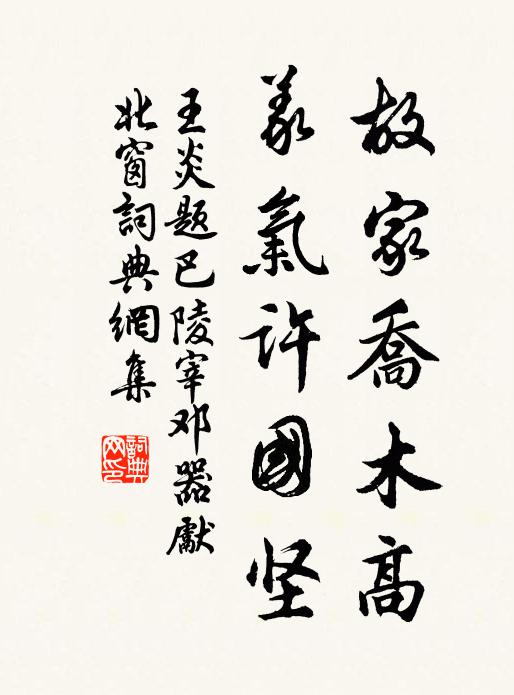 故家喬木高
義氣許國坚
王炎题巴陵宰邓器獻
北窗詞典網集
詞典
网印